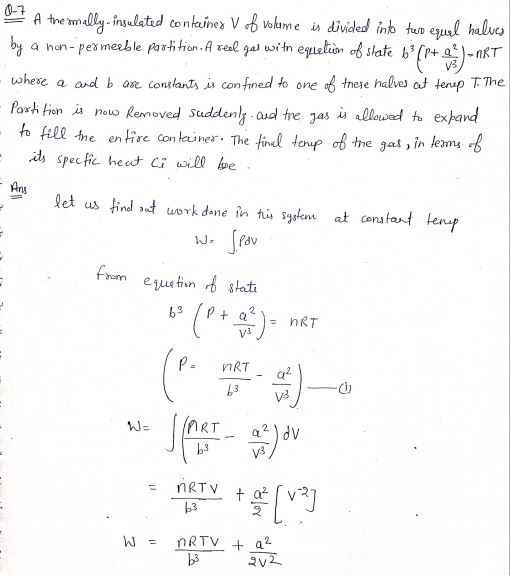 Q-7 A thermally-insulated container V of volume is divided into two equal halves
by a non-permeable partition. A real gas with equation of state b³(P+a²/V³)=nRT
where a and b are constants is confined to one of these halves at temp T. The
Partition is now Removed suddenly. and the gas is allowed to expand
to fill the entire container. The final temp of the gas, in terms of
its specfic heat Ci will be.
Ans
let us find out work done in this system at constant temp
W= ∫PdV
from equation of state
b³ (P + a²/V³) = nRT
(P = nRT/b³ - a²/V³) —— (i)
W= ∫(nRT/b³ - a²/V³) dV
= nRTV/b³ + a²/2 [V⁻²]
W = nRTV/b³ + a²/2V²